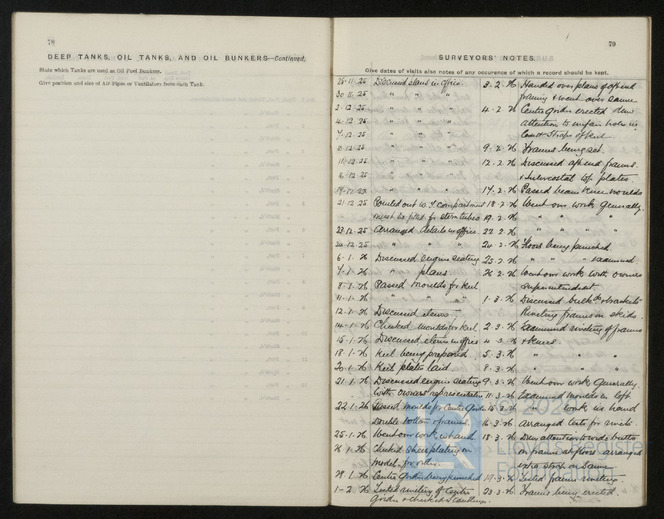 78
DEEP TANKS, OIL TANKS, AND OIL BUNKERS—Continued.
State which Tanks are used as Oil Fuel Bunkers.
Give position and size of Air Pipes or Ventilators from each Tank.
79
SURVEYORS' NOTES.
Give dates of visits also notes of any occurrence of which a record should be kept.
25-11-25 Discussed plans in office.
30-11-25 " " "
2-12-25 " " "
4-12-25 " " "
7-12-25 " " "
" " "
11-12-25 " " "
" " "
" " "
21-12-25 Pointed out W.T compartment
must be fitted for stern tubes
28-12-25 Arranged details in office.
30-12-25 " " "
6-1-26 Discussed engine seating
7-1-26 " plans
8-1-26 Passed moulds for keel
11-1-26 " " "
12-1-26 Discussed items
14-1-26 Checked moulds for keel.
15-1-26 Discussed items in office
18-1-26 Keel being prepared
20-1-26 Keel plates laid.
21-1-26 Discussed engine seating
with owners' representative
22-1-26 Passed moulds for Centre Girder
Double bottom & frames
25-1-26 Went over work in hand.
26-1-26 Checked sheer plating on
model, for
28-1-26 Centre Girder being punched
1-2-26 Tested riveting of Centre
Girder & checked
3-2-26 Handed over plans of aft end
framing & went over same
4-2-26 Centre Girder erected drew
attention to unfair holes in
Butt Straps of keel
9-2-26 Frames being set.
12-2-26 Discussed aft end frames
& Intercostal plates.
17-2-26 Passed beam knee moulds
18-2-26 Went over work generally.
19-2-26 " " "
22-2-26 " " "
24-2-26 Floors being punched
25-2-26 " " " examined
26-2-26 Went over work with owners
superintendent.
1-3-26 Discussed bulk & brackets
Riveting frames on skids
2-3-26 Examined riveting of frames
4-3-26 & knees.
5-3-26 " " "
8-3-26 " " "
9-3-26 Went over work generally.
11-3-26 Examined moulds in loft
15-3-26 " work in hand
16-3-26 Arranged tests for
18-3-26 Drew attention to wide butts
in frames at floors arranged
strap on same
19-3-26 Tested frame riveting.
23-3-26 Frames being erected.
© 202
Lloyd's Register
Foundation